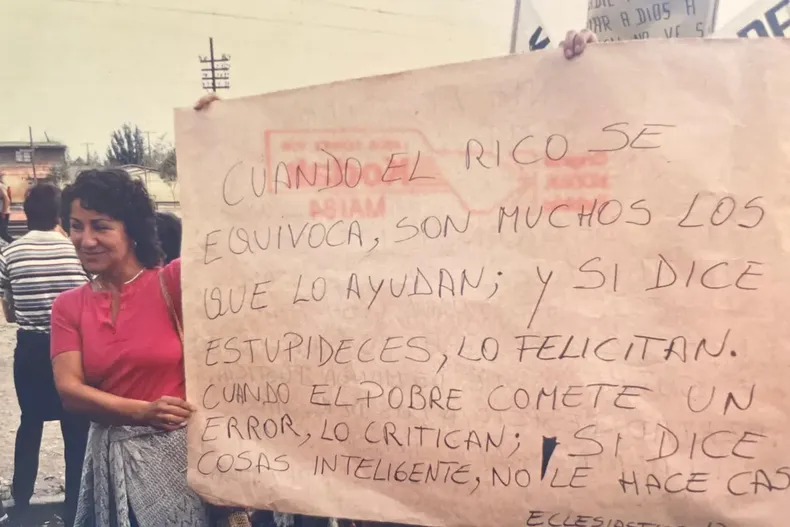 IAR A DIOS A
CUANDO EL RICO SE
EQUIVOCA, SON MUCHOS LOS
QUE LO AYUDAN; Y SI DICE
ESTUPIDECES, LO FELICITAN.
CUANDO EL POBRE COMETE UN
ERROR, LO CRITICAN; SI DICE
COSAS INTELIGENTE, NO LE HACE CAS
ECLESIAST